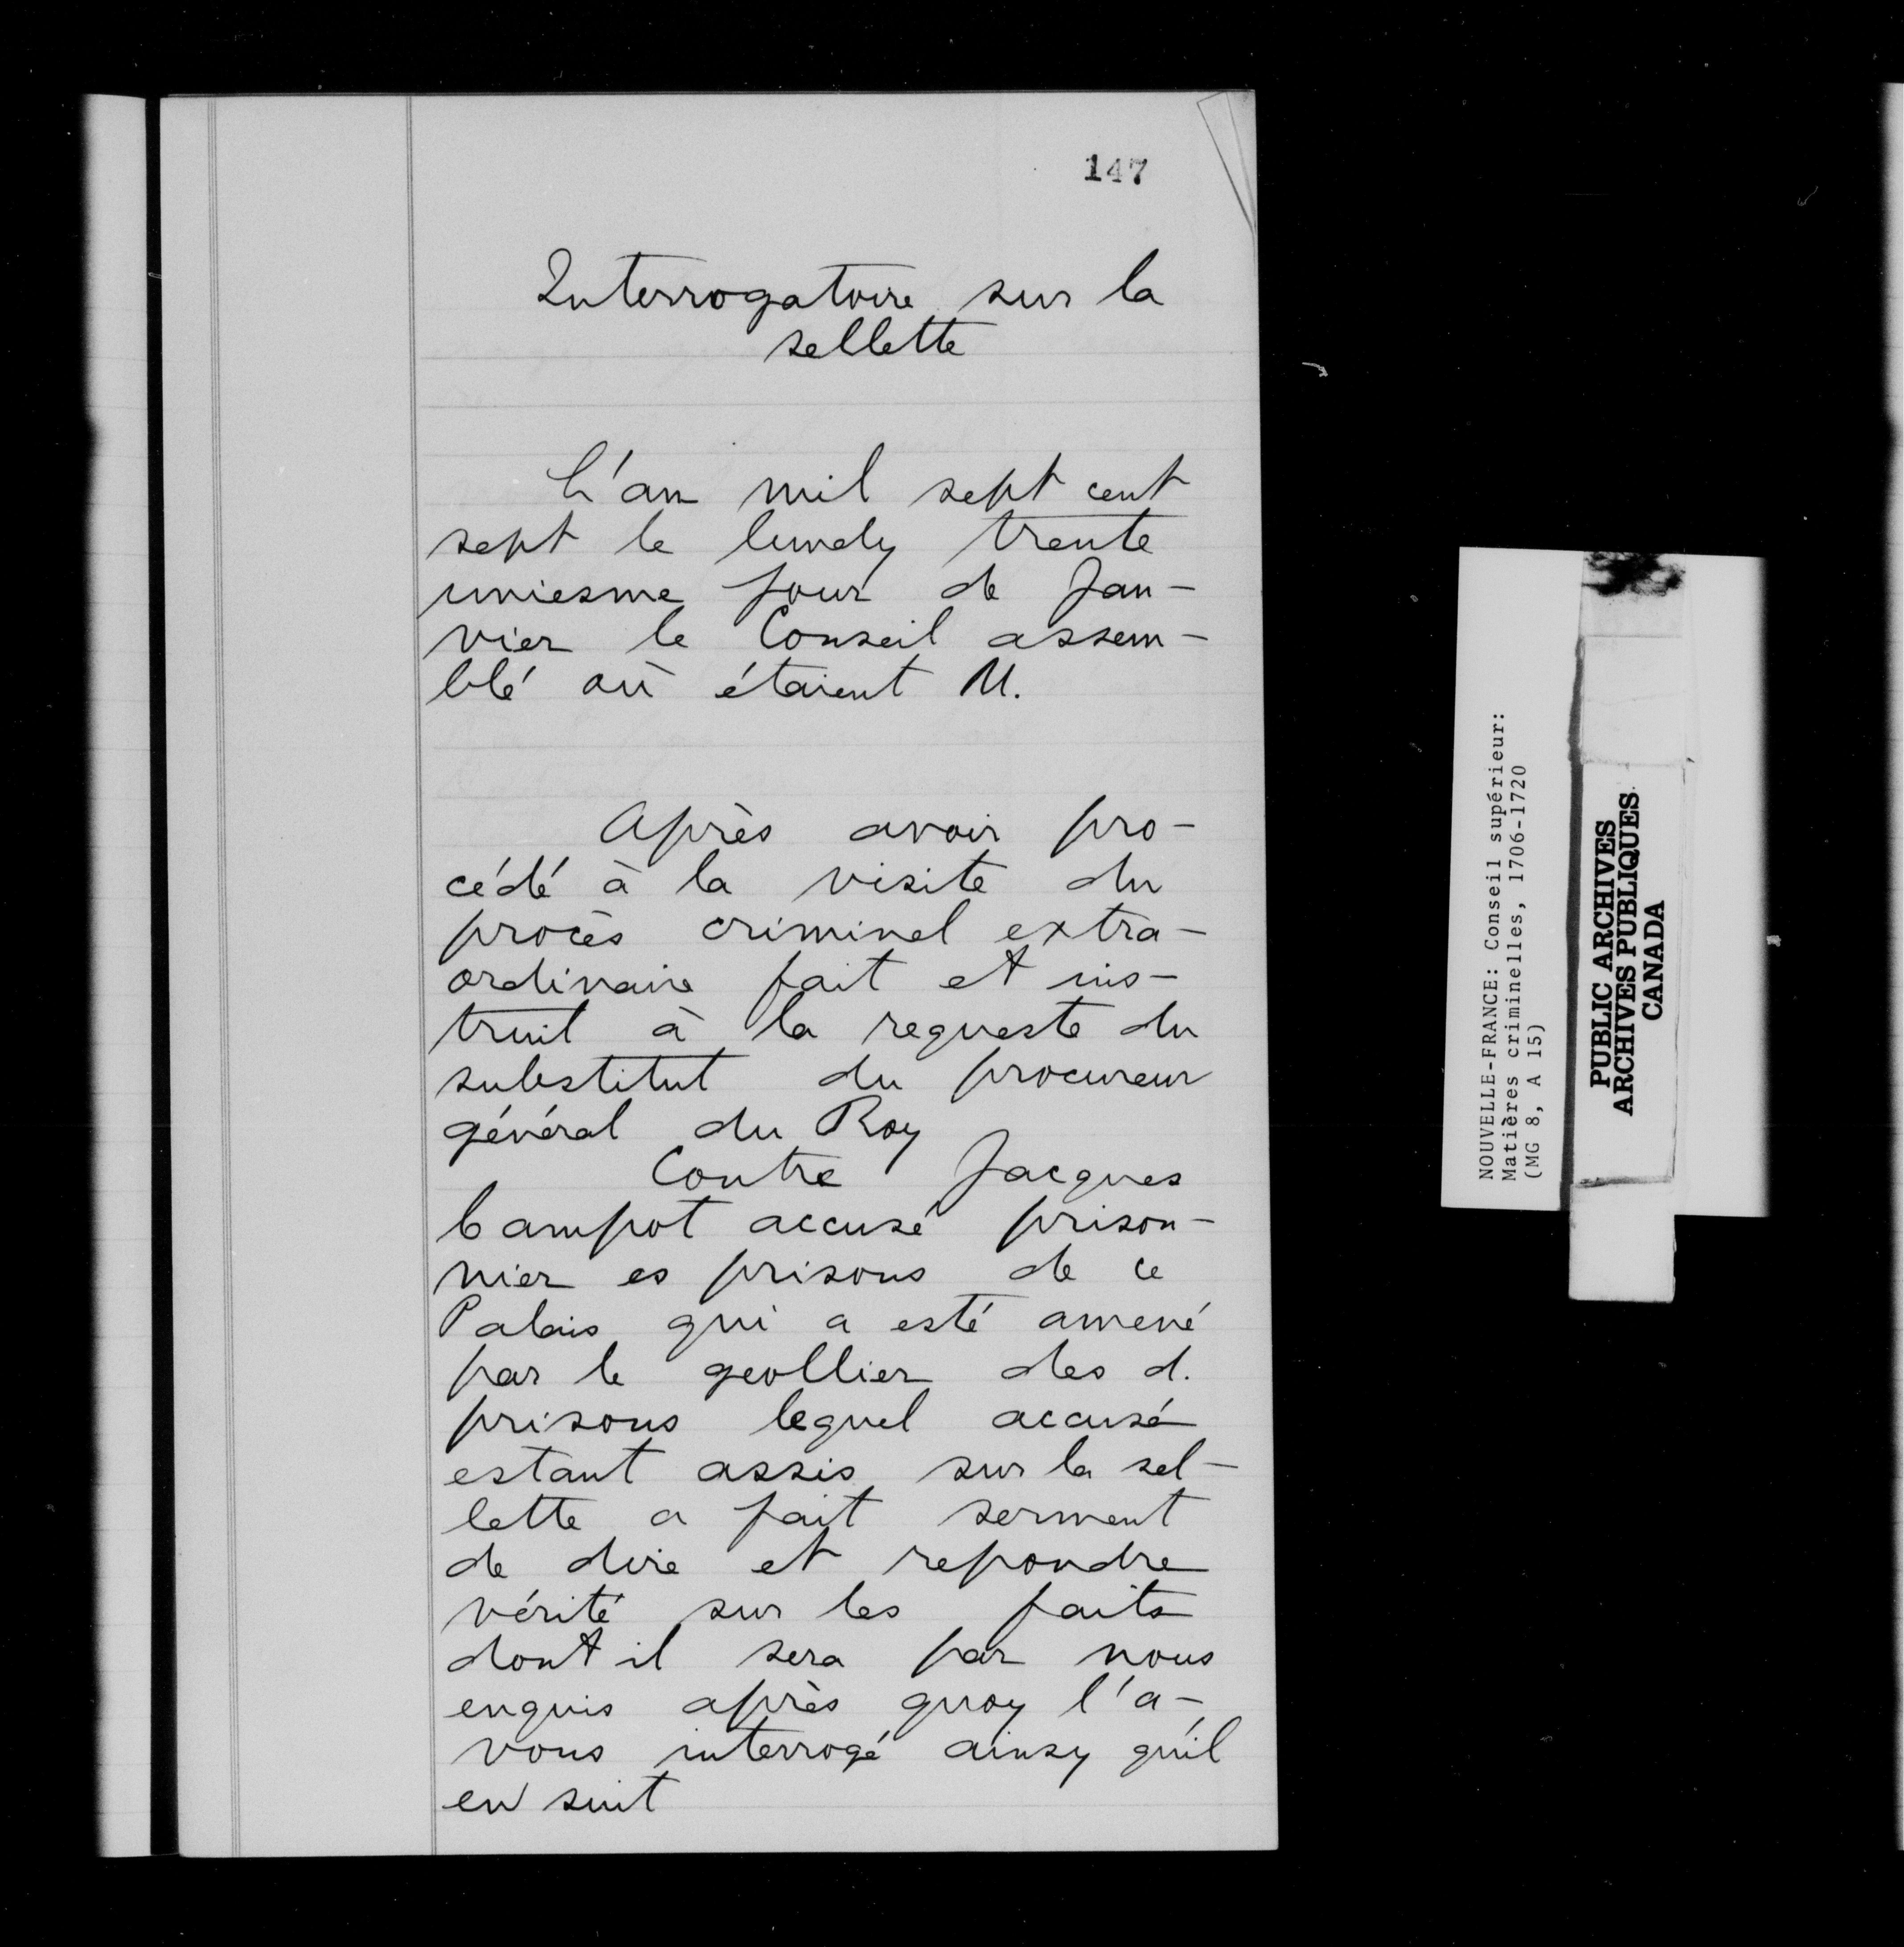 147
Interrogatoire sur la
sellette
L'an mil sept cent
sept le lundy trente
uniesme jour de Jan-
vier le Conseil assem-
blé où étaient M.
Après avoir pro-
cédé à la visite du
procès criminel extra-
ordinaire fait et ins-
truit à la requeste du
substitut du procureur
général du Roy
Contre Jacques
Campot accusé prison-
nier es prisons de ce
Palais qui a esté amené
par le geollier des d.
prisons lequel accusé
estant assis sur la sel-
lette a fait serment
de dire et repondre
vérité sur les faits
dont il sera par nous
enquis après quoy l'a-
vons interrogé ainsy qu'il
en suit
NOUVELLE-FRANCE: Conseil supérieur:
Matières criminelles, 1706-1720
(MG 8, A 15)
PUBLIC ARCHIVES
ARCHIVES PUBLIQUES
CANADA